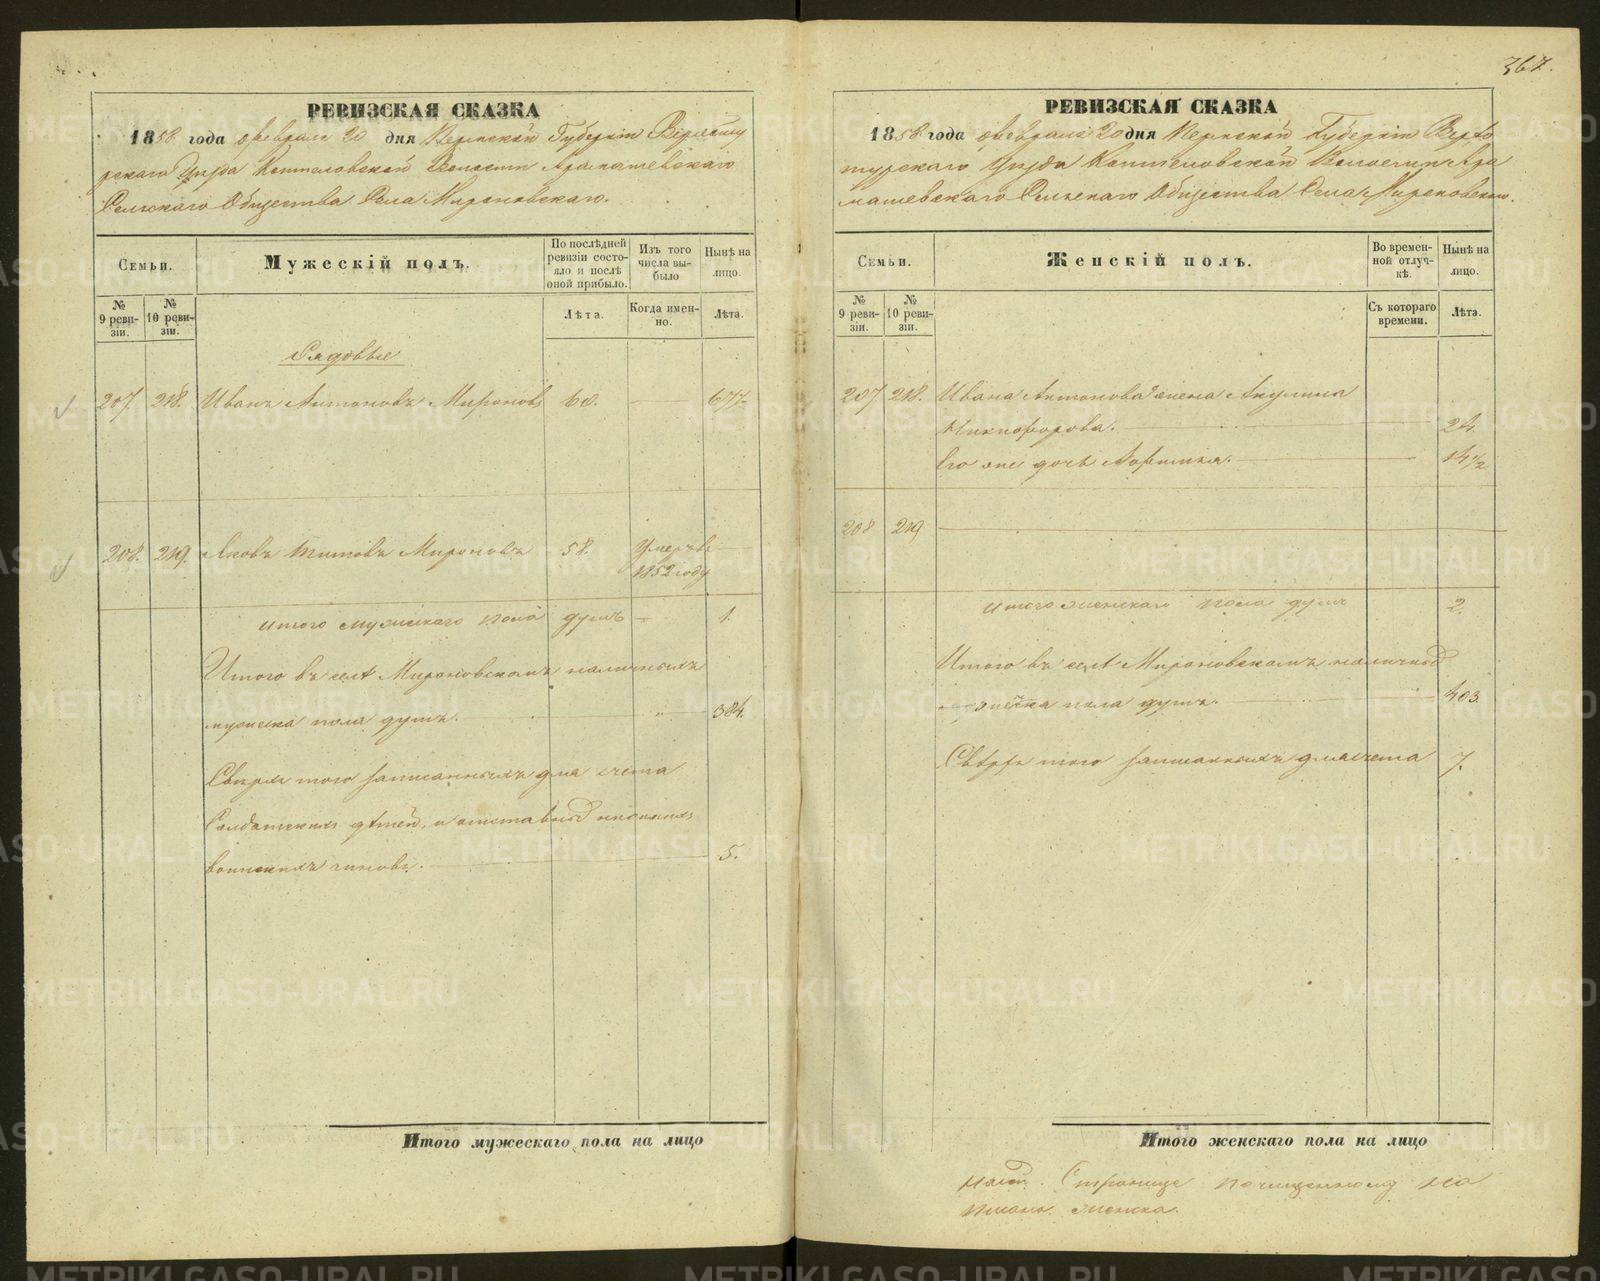 367.
РЕВИЗСКАЯ СКАЗКА
1858 года февраля 20 дня Пермской Губерніи Верхоту
рскаго Уѣзда Коптеловской Волости Арамашевскаго
Сельскаго Общества Села Мироновскаго.
Семьи.
Мужескій полъ.
По послѣдней ревизіи состояло и послѣ оной прибыло.
Изъ того числа выбыло
Нынѣ на лицо.
№ 9 ревизіи.
№ 10 ревизіи.
Лѣта.
Когда именно.
Лѣта.
Рядовые
207. 218. Иванъ Антоновъ Мироновъ 60.
208. 219. Яковъ Титовъ Мироновъ 58. Умеръ въ
1852 году
Итого мужескаго пола душъ 1.
Итого въ селѣ Мироновскомъ наличныхъ
мужеска пола душъ. 384.
Сверхъ того записанныхъ для счета
Солдатскихъ дѣтей, и отставной нижнихъ
воинскихъ чиновъ. 5.
Итого мужескаго пола на лицо
РЕВИЗСКАЯ СКАЗКА
1858 года февраля 20 дня Пермской Губерніи Верхо
турскаго Уѣзда Коптеловской Волости Ара
машевскаго Сельскаго Общества Села Мироновскаго.
Семьи.
Женскій полъ.
Во временной отлучкѣ.
Нынѣ на лицо.
№ 9 ревизіи.
№ 10 ревизіи.
Съ котораго времени.
Лѣта.
207 218. Ивана Антонова жена Акулина
Никифорова. 24.
Его же дочь 14 1/2
208 219
Итого женскаго пола душъ 2.
Итого въ селѣ Мироновскомъ наличной
женска пола душъ. 403.
Сверхъ того записанныхъ для счета 7.
Итого женскаго пола на лицо
Странице почищенному
METRIKI.GASO-URAL.RU